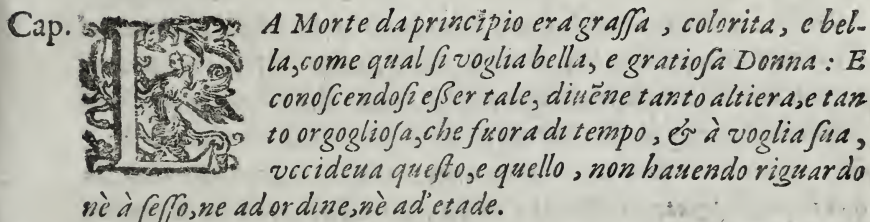 Cap. LA Morte da principio era graſſa , colorita, e bel-
la, come qual ſi voglia bella, e gratioſa Donna : E
conoſcendoſi eſſer tale, diuēne tanto altiera, e tan
to orgoglioſa, che fuora di tempo , & à voglia ſua ,
vccideua queſto, e quello , non hauendo riguardo
nè à ſeſſo, ne ad ordine, nè ad' etade.